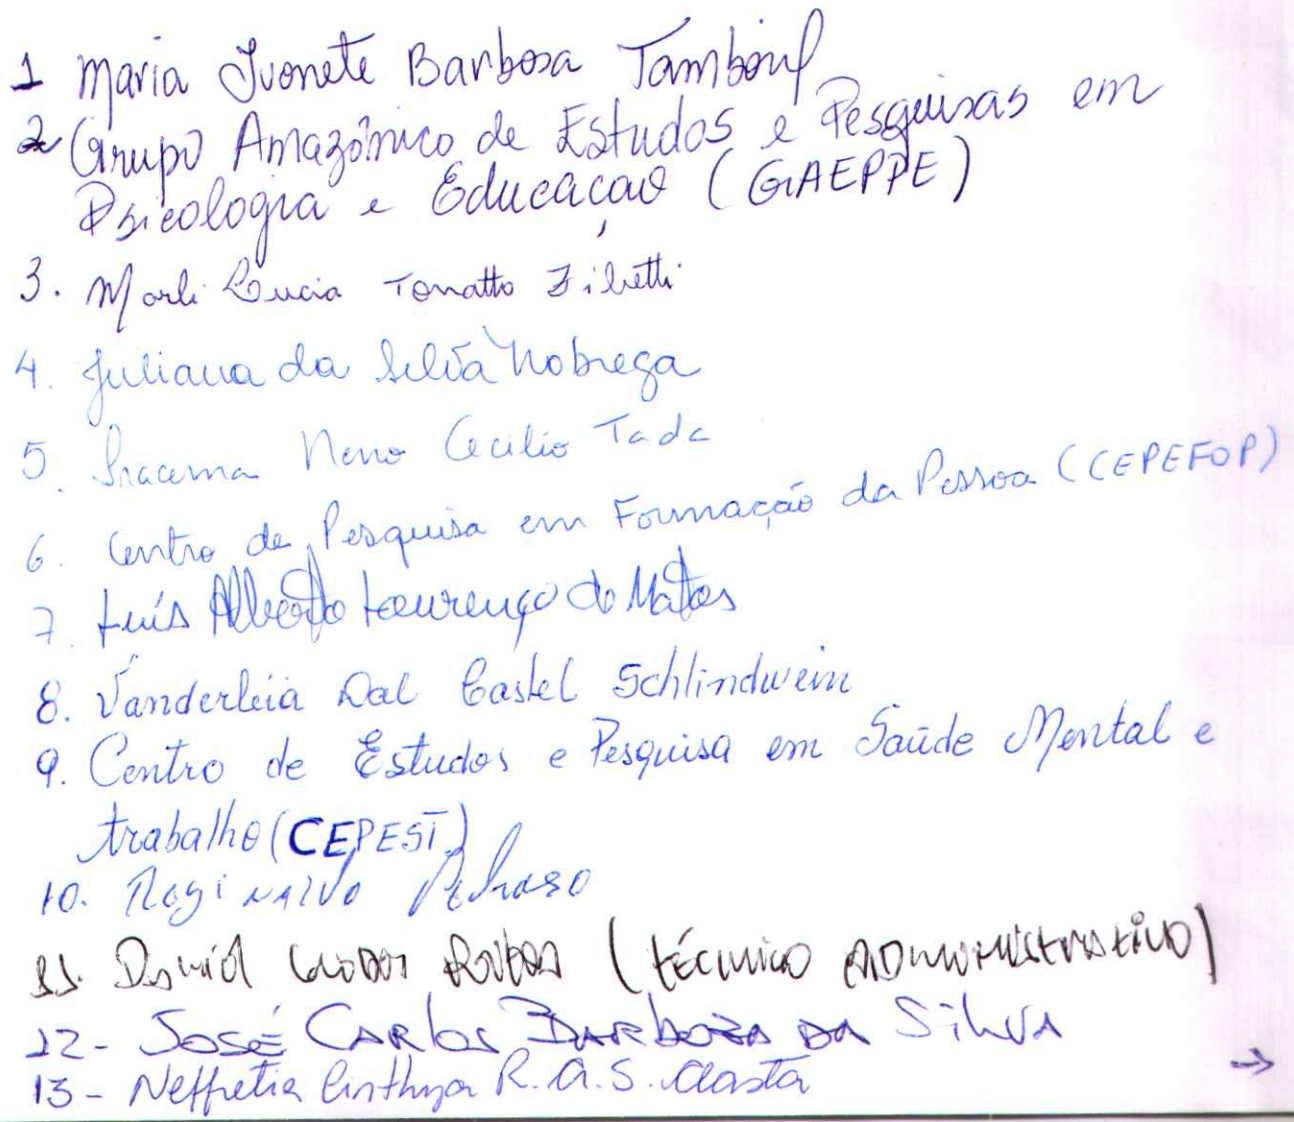 1 Maria Ivonete Barbosa Tamboril
2 Grupo Amazônico de Estudos e Pesquisas em
Psicologia e Educação (GAEPPE)
3. Marli Lucia Tonatto Zibetti
4. Juliana da Silva Nobrega
5. Iracema Neno Cecilio Tada
6. Centro de Pesquisa em Formação da Pessoa (CEPEFOP)
7. Luís Alberto Lourenço de Matos
8. Vanderleia Dal Castel Schlindwein
9. Centro de Estudos e Pesquisa em Saúde Mental e
trabalho (CEPEST)
10. Reginaldo Pedroso
11. Daniel (técnico ADministrativo)
12- José Carlos Barboza da Silva
13- Neffretia Cinthya R. A. S. Casta
→